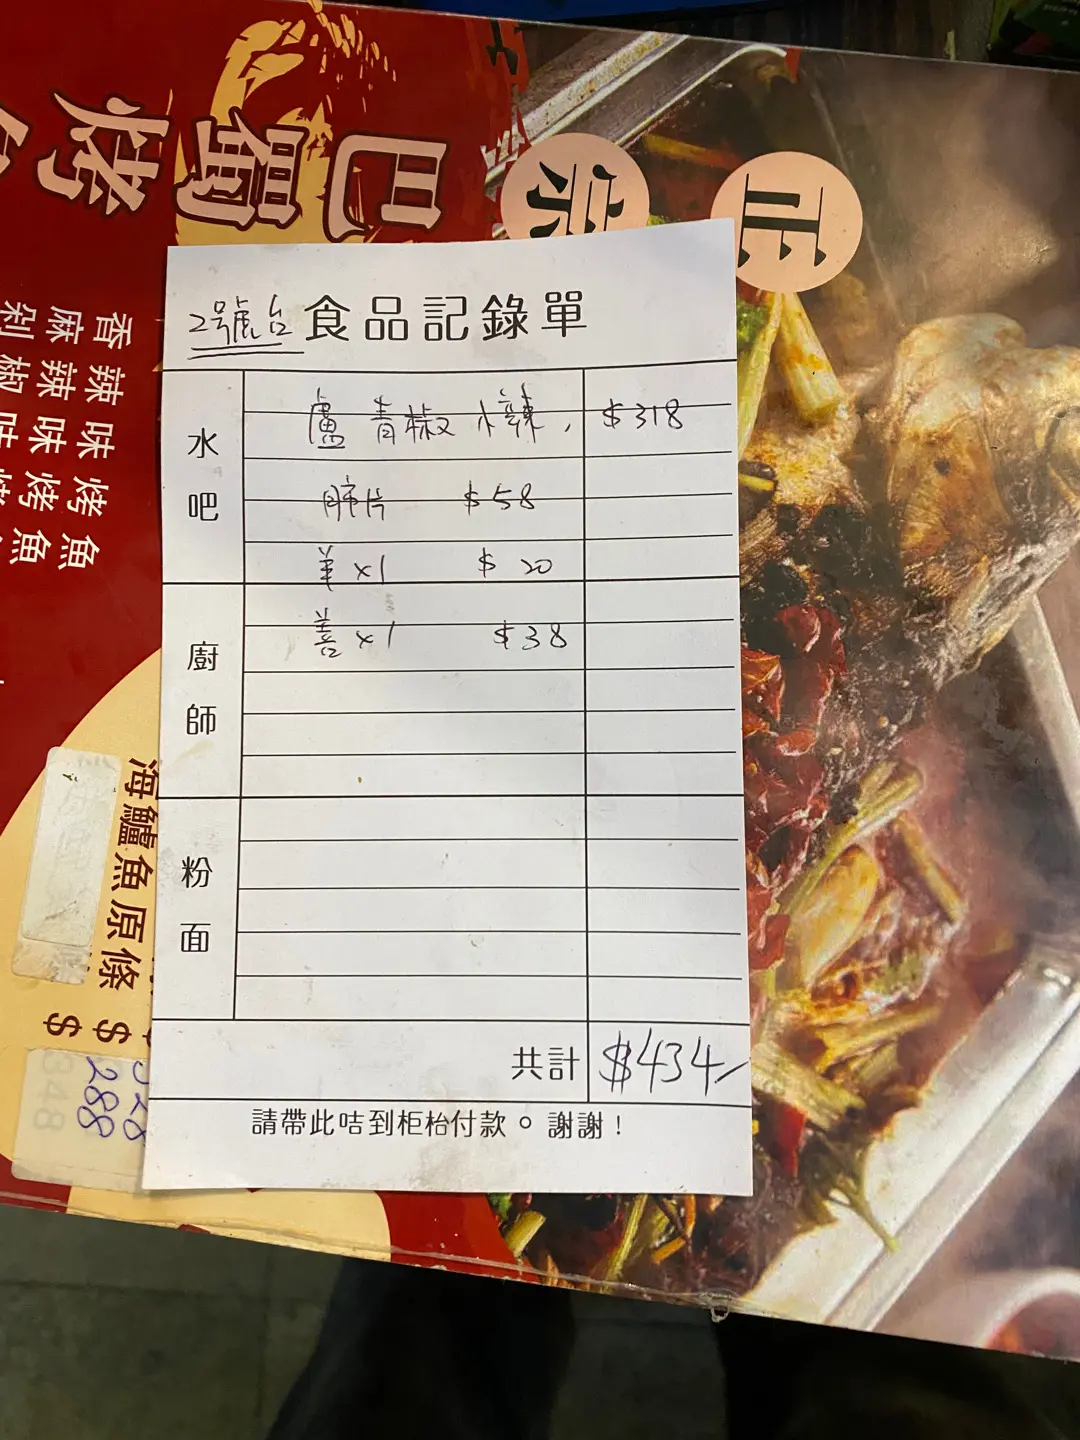 巴蜀烤
正宗
香辣味烤魚
麻辣味烤魚
剁椒味烤魚
海鱸魚原條
$ $
328
288
2號台 食品記錄單
水吧
盧 青椒 小辣, $318
肺片 $58
羊 x1 $ 20
廚師
善 x1 $38
粉面
共計 $434/
請帶此咭到柜枱付款。謝謝！